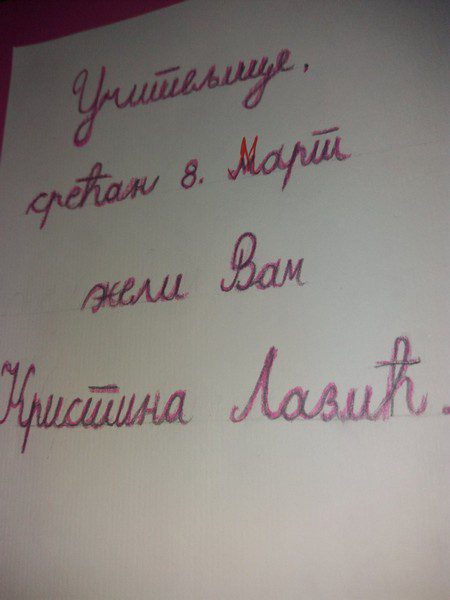 Учитељице,
срећан 8. Март
жели Вам
Кристина Лазић.